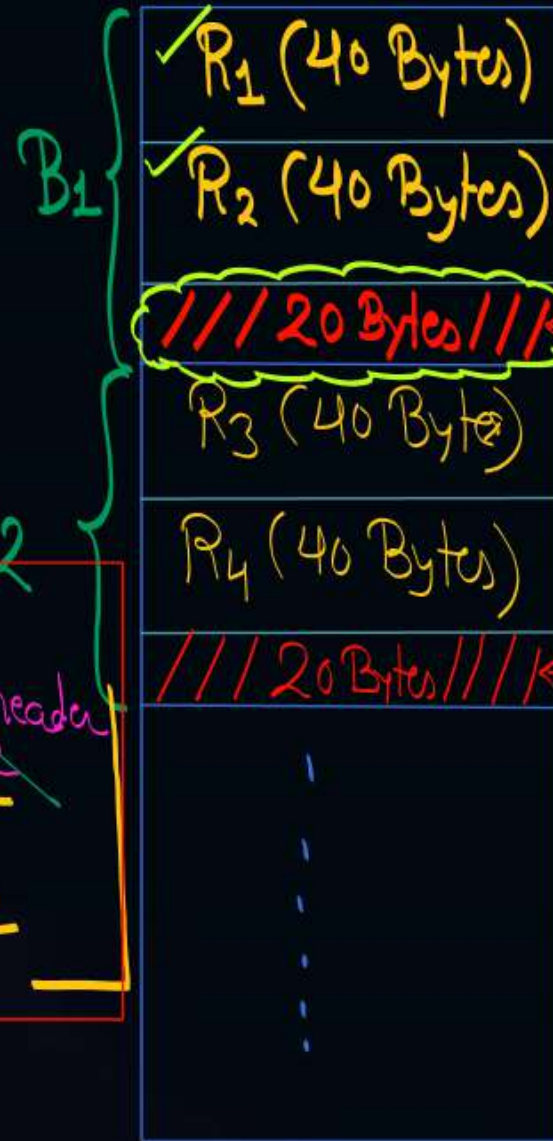 R1 (40 Bytes)
B1
R2 (40 Bytes)
/// 20 Bytes ///
R3 (40 Bytes)
2
R4 (40 Bytes)
/// 20 Bytes ////
header